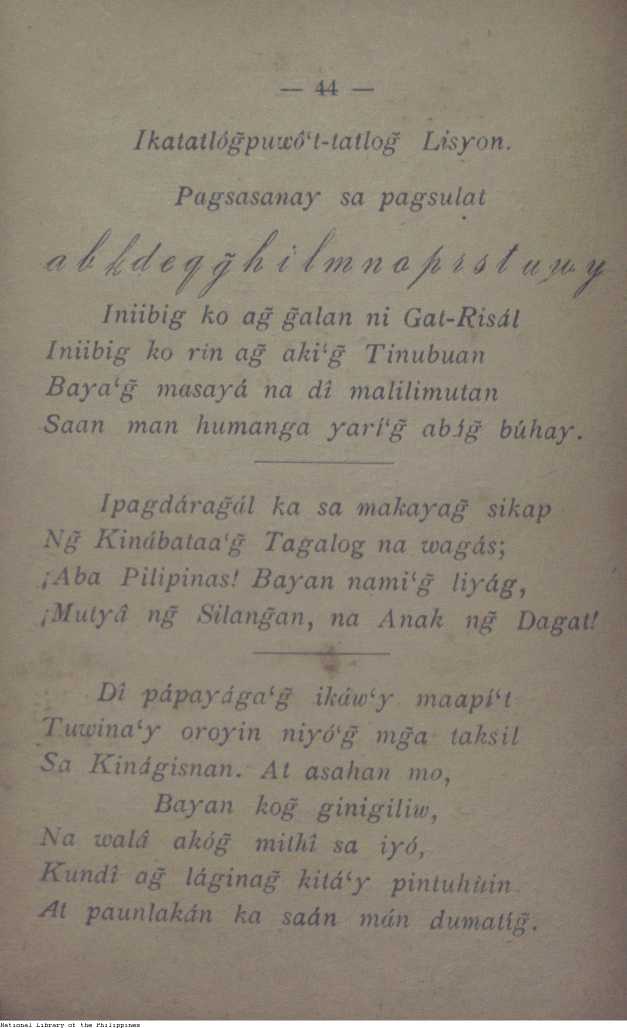 — 44 —
Ikatatlóg̃puwô‘t-tatlog̃ Lisyon.
Pagsasanay sa pagsulat
a b k d e g g̃ h i l m n o p r s t u w y
Iniibig ko ag̃ g̃alan ni Gat-Risál
Iniibig ko rin ag̃ aki‘g̃ Tinubuan
Baya‘g̃ masayá na dî malilimutan
Saan man humanga yarí‘g̃ abág̃ búhay.
Ipagdárag̃ál ka sa makayag̃ sikap
Ng̃ Kinábataa‘g̃ Tagalog na wagás;
¡Aba Pilipinas! Bayan nami‘g̃ liyág,
¡Mutyâ ng̃ Silang̃an, na Anak ng̃ Dagat!
Dî pápayága‘g̃ ikáw‘y maapí‘t
Tuwina‘y oroyin niyó‘g̃ mg̃a taksil
Sa Kinágisnan. At asahan mo,
Bayan kog̃ ginigiliw,
Na walâ akóg̃ mithî sa iyó,
Kundî ag̃ láginag̃ kitá‘y pintuhùin
At paunlakán ka saán mán dumatíg̃.
National Library of the Philippines